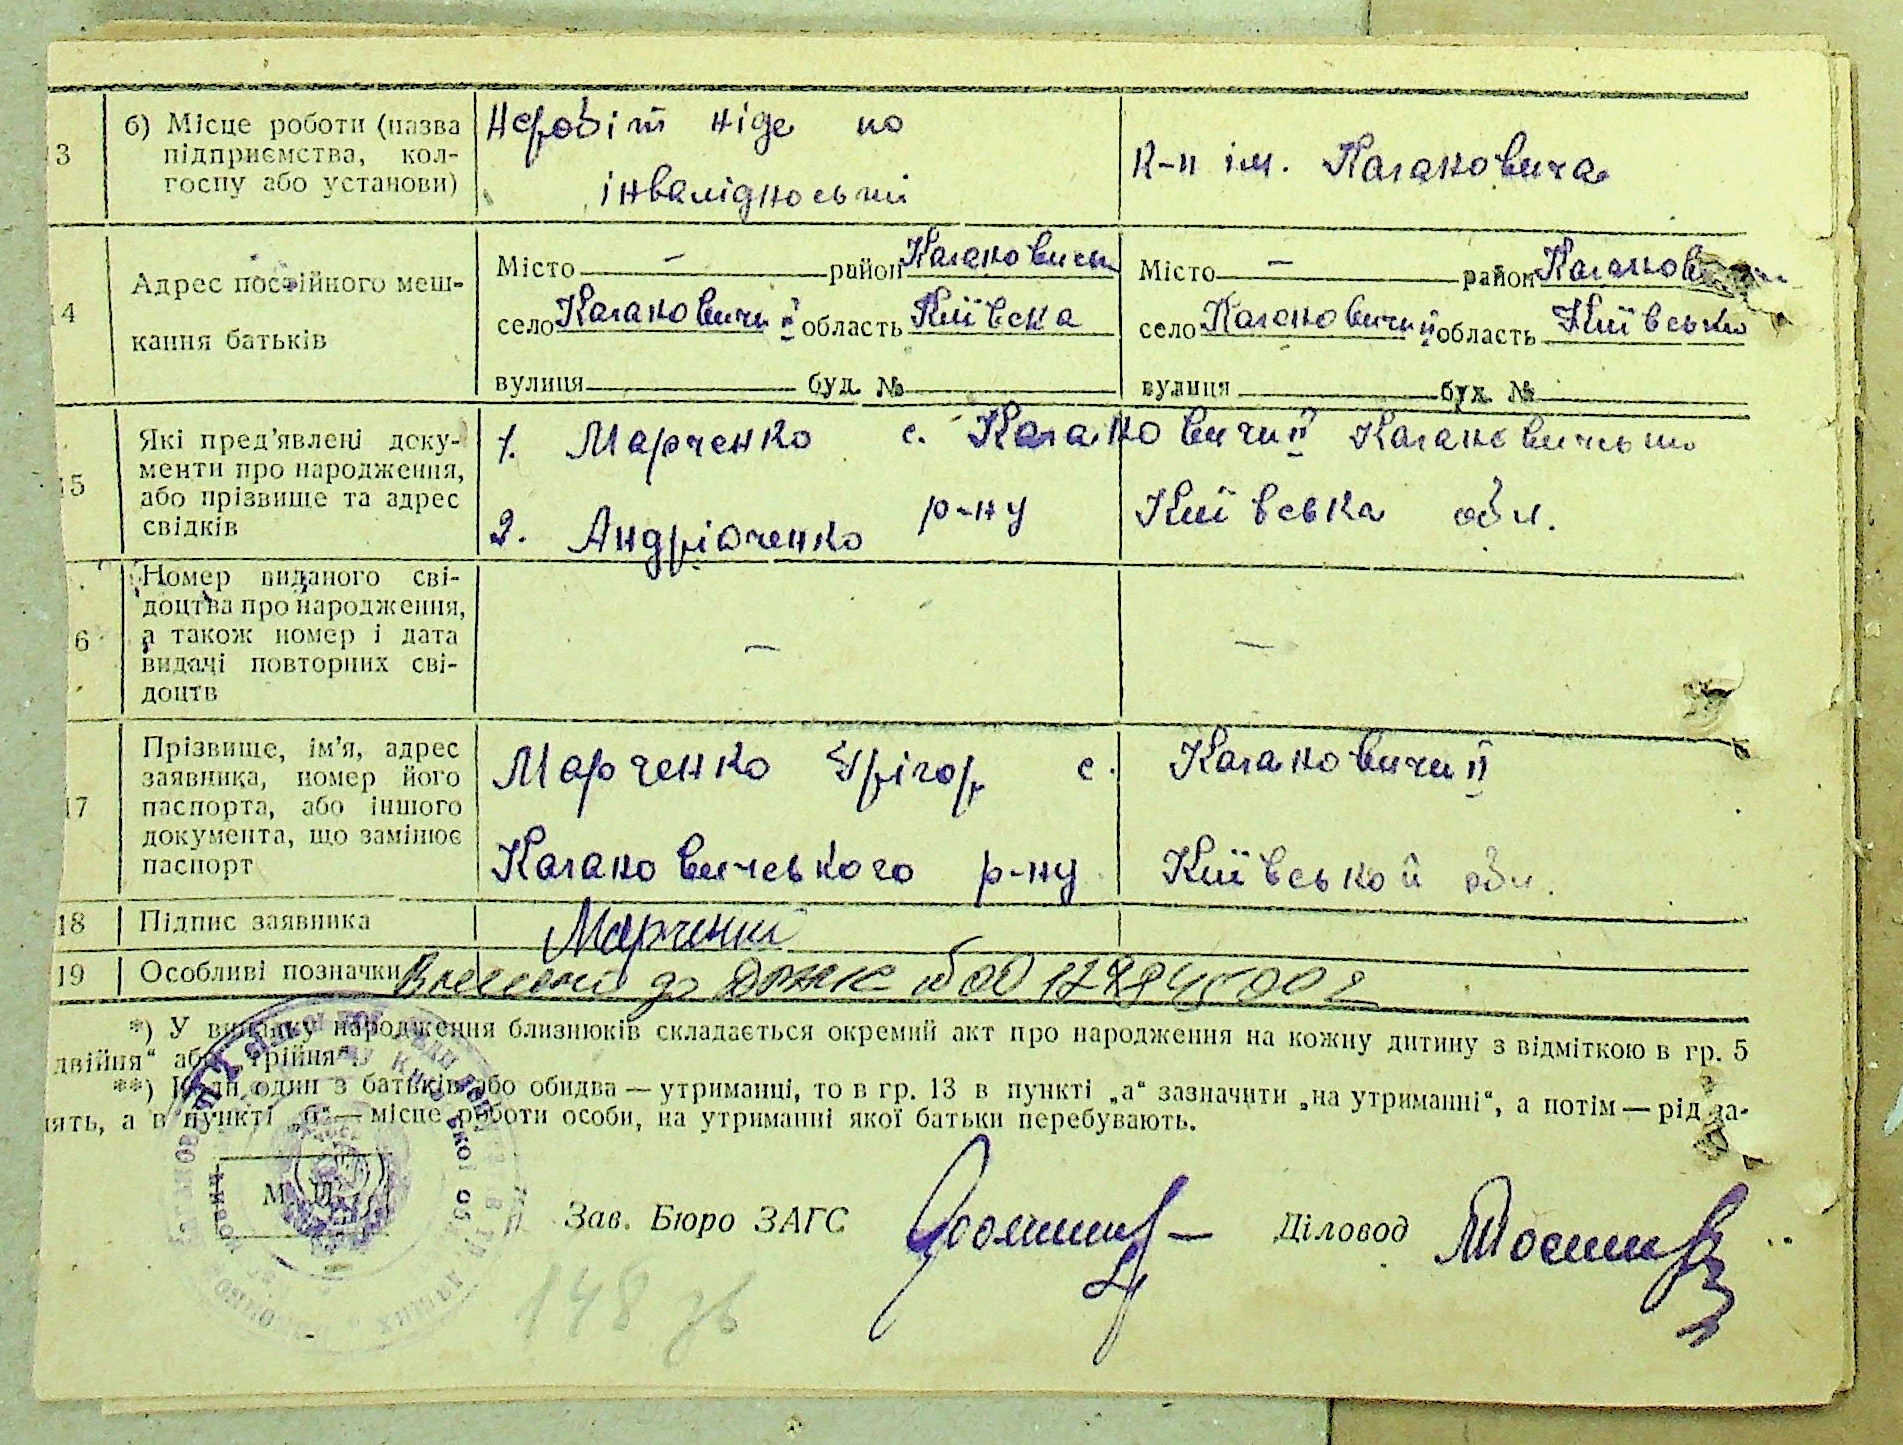 3
б) Місце роботи (назва
підприємства, кол-
госпу або установи)
Неробіт ніде по
інвалідності
К-п ім. Кагановича
4
Адрес постійного меш-
кання батьків
Місто — район Каганович
село Кагановичи ІІ область Київска
вулиця буд. №
Місто — район
село Кагановичи ІІ область Київсько
вулиця буд. №
15
Які пред'явлені доку-
менти про народження,
або прізвище та адрес
свідків
1. Марченко с. Кагановичи ІІ
2. Андріюченко р-ну Київська обл.
6
Номер виданого сві-
доцтва про народження,
а також номер і дата
видачі повторних сві-
доцтв
— —
17
Прізвище, ім'я, адрес
заявника, номер його
паспорта, або іншого
документа, що замінює
паспорт
Марченко Грігор с. Кагановичи ІІ
Кагановичського р-ну Київськой обл.
18 Підпис заявника
Марченко
19 Особливі позначки
до
*) У випадку народження близнюків складається окремий акт про народження на кожну дитину з відміткою в гр. 5
двійня“ або „трійня“.
**) Коли один з батьків або обидва — утриманці, то в гр. 13 в пункті „а“ зазначити „на утриманні“, а потім — рід за-
нять, а в пункті „б“ — місце роботи особи, на утриманні якої батьки перебувають.
М. П.
Зав. Бюро ЗАГС Діловод
148 зв